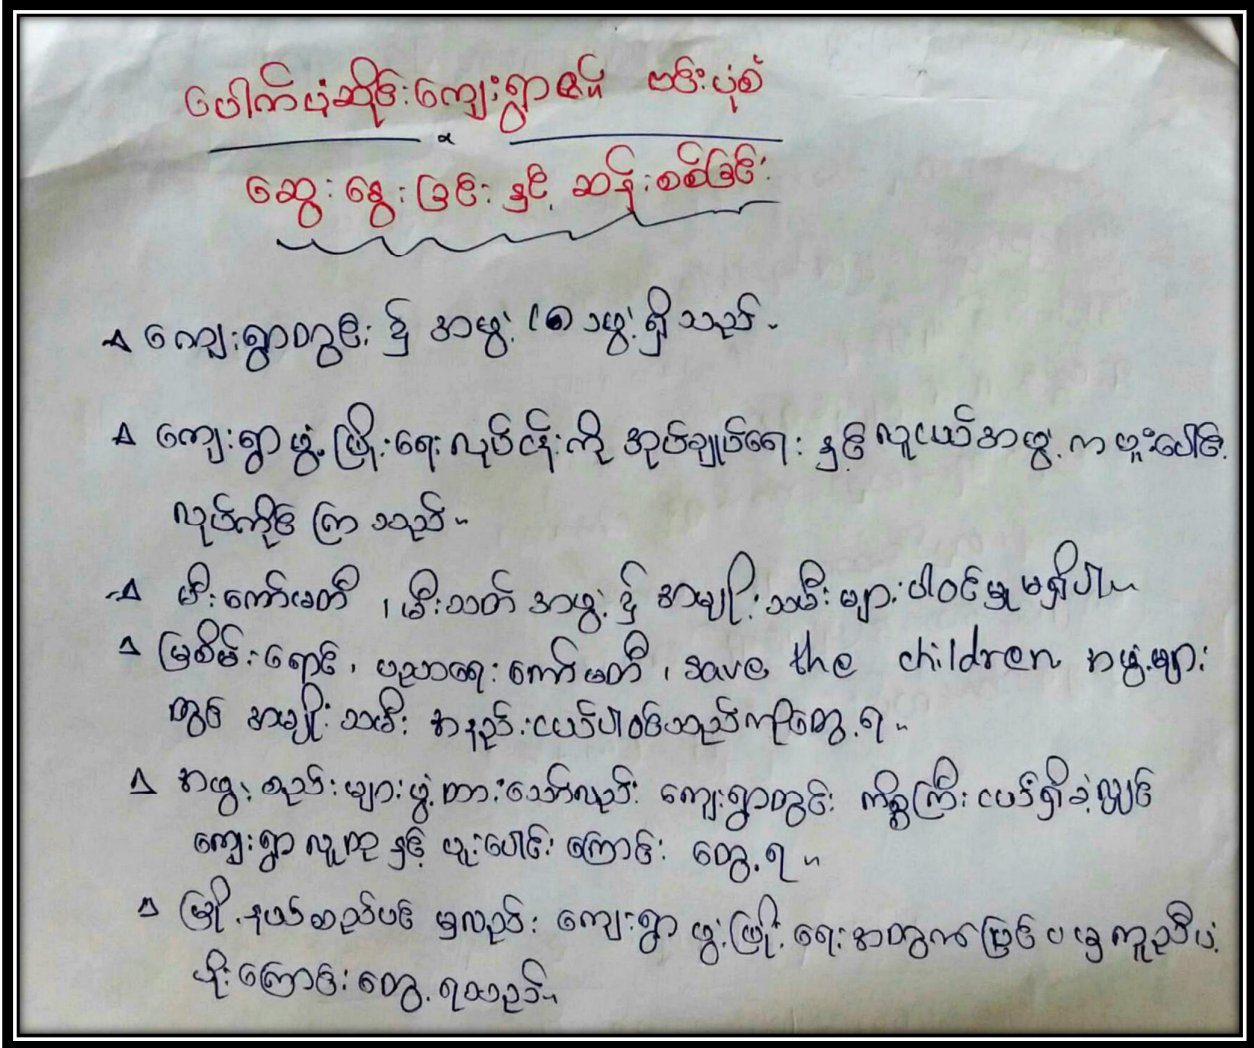 ပေါက်ပံဆိုင်းကျေးရွာ၏ ဗင်းပုံစံ
ဆွေးနွေးခြင်းနှင့် ဆန်းစစ်ခြင်း
ကျေးရွာတွင်း ၌ အဖွဲ့ (၈) ဖွဲ့ ရှိသည်။
ကျေးရွာဖွံ့ဖြိုးရေးလုပ်ငန်းကို အုပ်ချုပ်ရေး နှင့် လူငယ်အဖွဲ့ က ပူးပေါင်း
လုပ်ကိုင် ကြ သည်။
မီးကော်မတီ ၊ မီးသတ် အဖွဲ့ ၌ အမျိုးသမီးများ ပါဝင်မှု မရှိပါ။
မြစိမ်းရောင် ၊ ပညာရေးကော်မတီ ၊ save the children အဖွဲ့များ
တွင် အမျိုးသမီး အနည်းငယ်ပါဝင်သည်ကိုတွေ့ရ။
အဖွဲ့စည်းများဖွဲ့ထားသော်လည်း ကျေးရွာတွင်း ကိစ္စကြီးငယ်ရှိခဲ့လျှင်
ကျေးရွာလူထု နှင့် ပူးပေါင်းကြောင်း တွေ့ရ။
မြို့နယ်စည်ပင် မှလည်း ကျေးရွာ ဖွံ့ဖြိုးရေးအတွက်ပြင်ပမှကူညီပံ့
ပိုးကြောင်းတွေ့ရသည်။